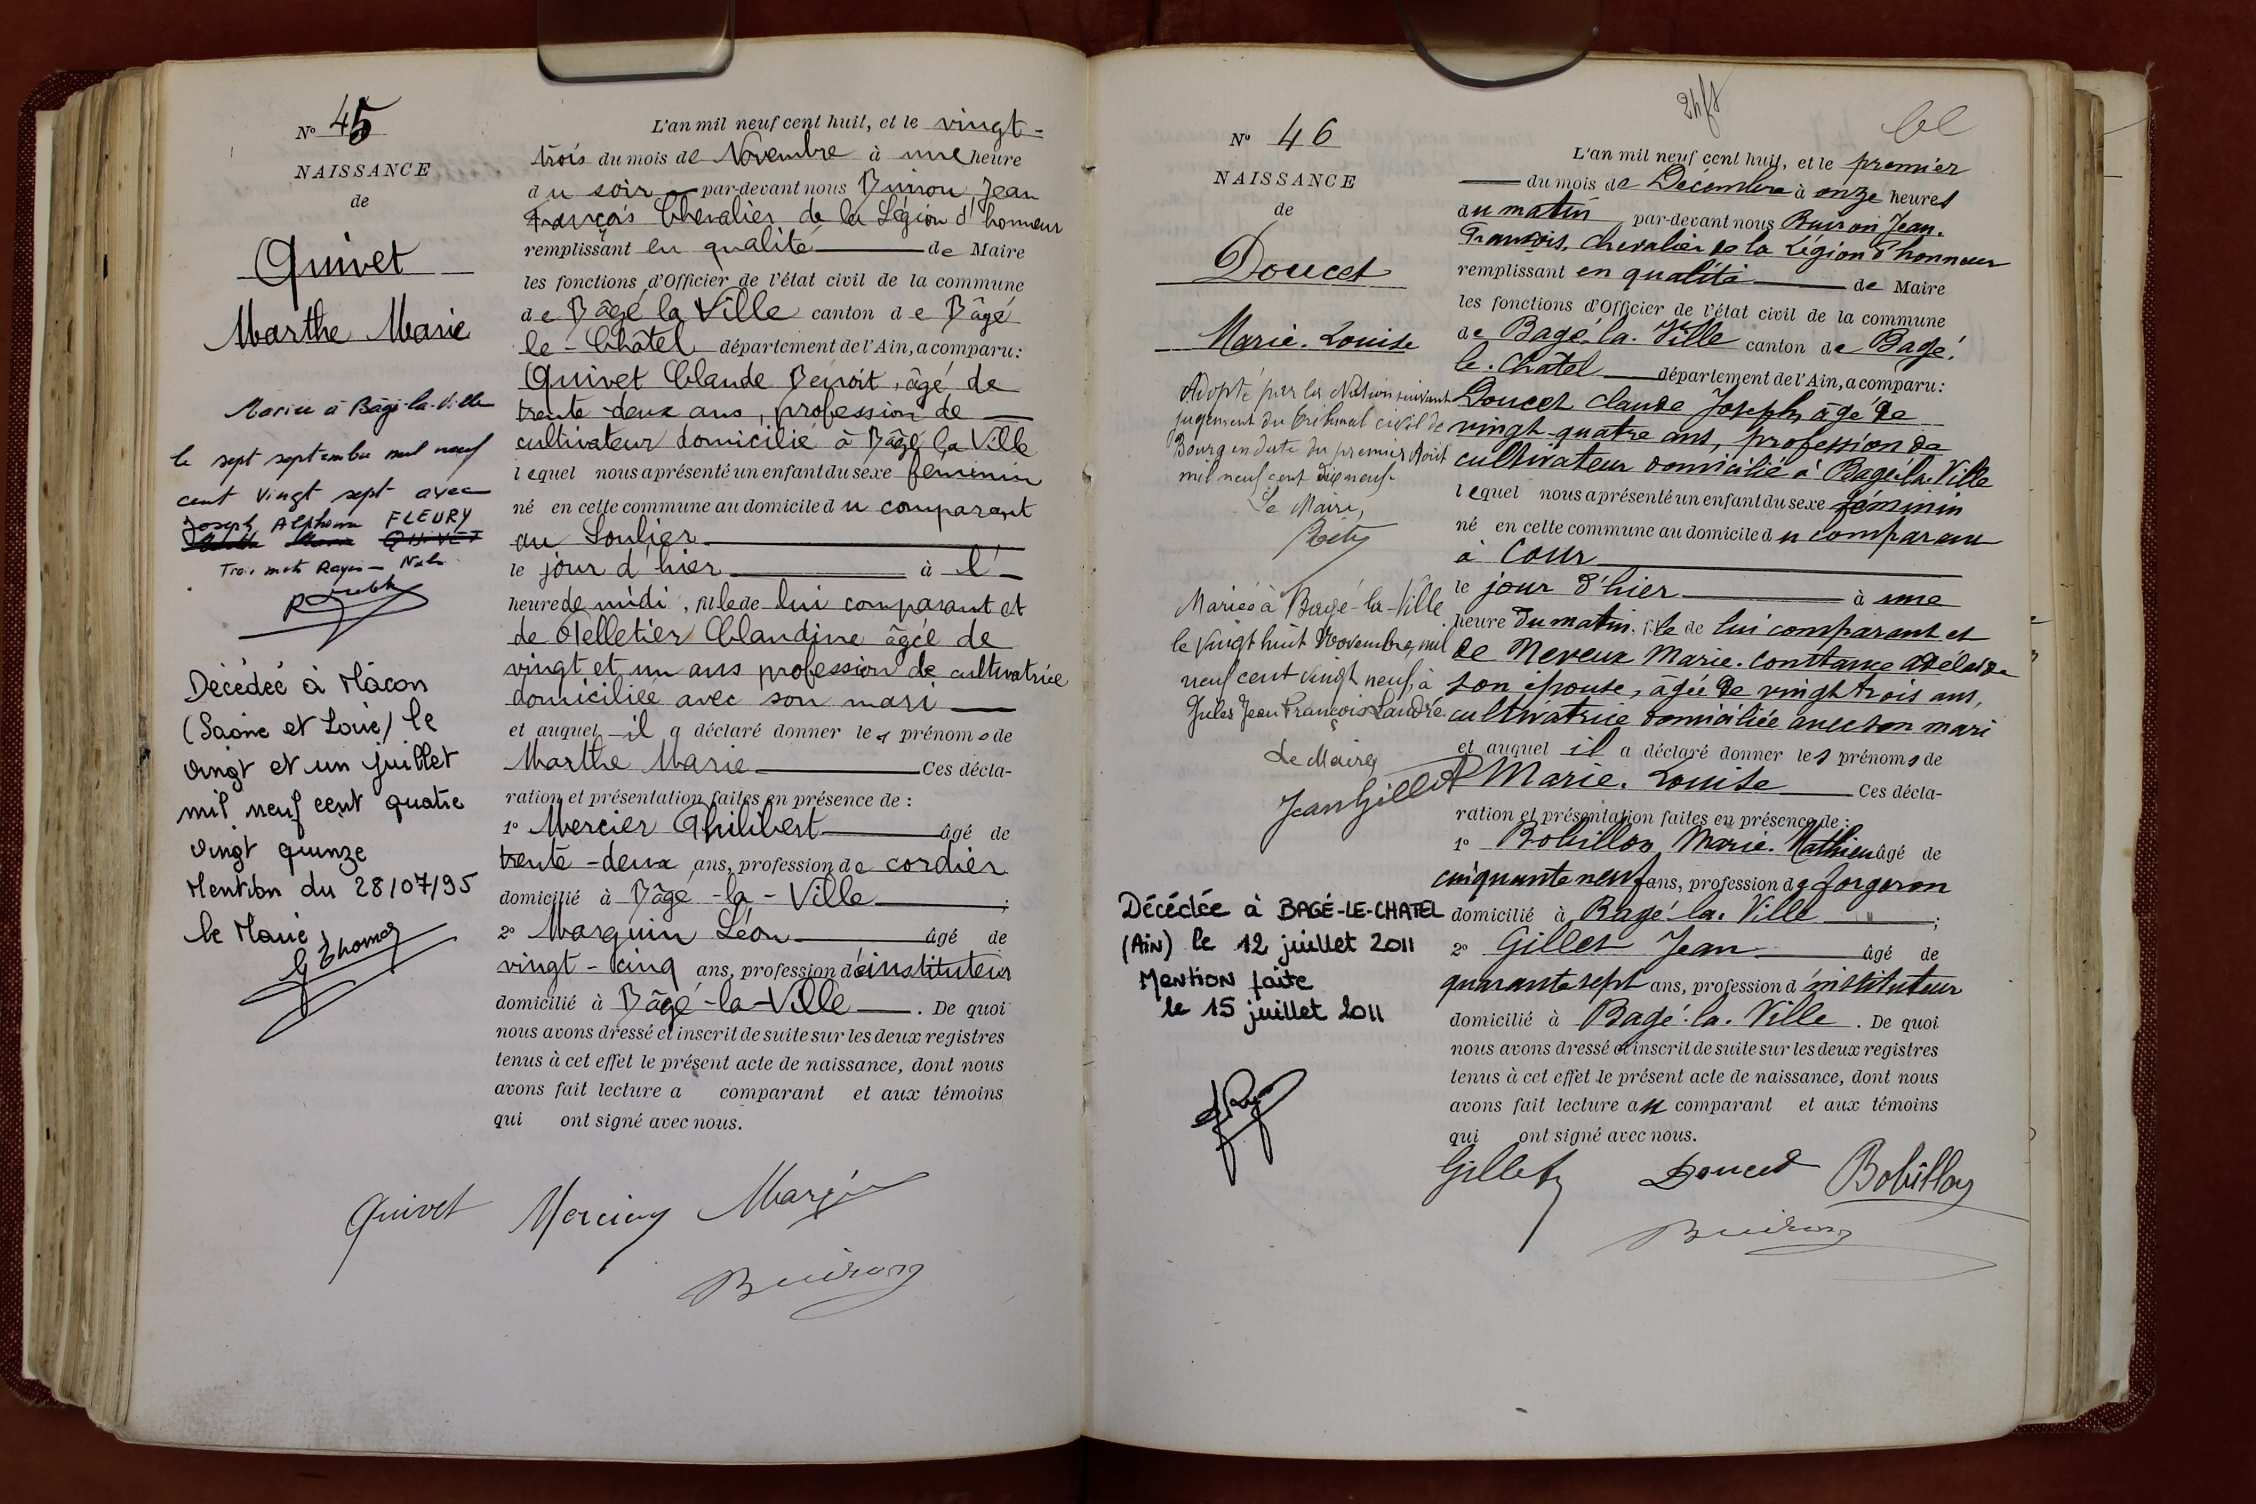 N° 45
NAISSANCE
de
Quivet
Marthe Marie
Mariée à Bâgé-la-Ville
le sept septembre mil neuf
cent vingt sept avec
Joseph Alphonse FLEURY
Trois mots Rayés Nuls
Décédée à Mâcon
(Saône et Loire) le
vingt et un juillet
mil neuf cent quatre
vingt quinze
Mention du 28/07/95
le Maire,
L'an mil neuf cent huit, et le vingt-
trois du mois de Novembre à une heure
du soir par-devant nous Buiron Jean
François Chevalier de la Légion d'honneur
remplissant en qualité de Maire
les fonctions d'Officier de l'état civil de la commune
de Bâgé la Ville canton de Bâgé
le-Châtel département de l'Ain, a comparu:
Quivet Claude Benoit, âgé de
trente-deux ans, profession de
cultivateur domicilié à Bâgé la Ville
lequel nous a présenté un enfant du sexe féminin
né en cette commune au domicile du comparant
au Soulier
le jour d'hier à l'
heure de midi, fille de lui comparant et
de Pelletier Claudine âgée de
vingt et un ans profession de cultivatrice
domiciliée avec son mari
et auquel il a déclaré donner les prénoms de
Marthe Marie Ces décla-
ration et présentation faites en présence de :
1° Mercier Philibert âgé de
trente-deux ans, profession de cordier
domicilié à Bâgé-la-Ville ;
2° Marguin Léon âgé de
vingt-cinq ans, profession d'instituteur
domicilié à Bâgé-la-Ville . De quoi
nous avons dressé et inscrit de suite sur les deux registres
tenus à cet effet le présent acte de naissance, dont nous
avons fait lecture a comparant et aux témoins
qui ont signé avec nous.
Quivet Mercier Marguin
Buiron
N° 46
NAISSANCE
de
Doucet
Marie. Louise
Adopté par la Nation suivant
jugement du tribunal civil de
Bourg en date du premier Août
mil neuf cent dix neuf
Le Maire,
Mariés à Bagé-la-Ville
le vingt huit Novembre, mil
neuf cent vingt neuf, à
Jules Jean François Landre
Le Maire,
Jean Gillet
Décédée à BAGÉ-LE-CHATEL
(Ain) le 12 juillet 2011
Mention faite
le 15 juillet 2011
L'an mil neuf cent huit, et le premier
du mois de Décembre à onze heures
du matin par-devant nous Buiron Jean.
François, Chevalier de la Légion d'honneur
remplissant en qualité de Maire
les fonctions d'Officier de l'état civil de la commune
de Bagé. la. Ville canton de Bagé.
le. Châtel département de l'Ain, a comparu:
Doucet Claude Joseph, âgé de
vingt-quatre ans, profession de
cultivateur domicilié à Bagé-la-Ville
lequel nous a présenté un enfant du sexe féminin
né en cette commune au domicile du comparant
à Cour
le jour d'hier à une
heure du matin, fille de lui comparant et
de Neveux Marie. Constance Adélaïde
son épouse, âgée de vingt trois ans,
cultivatrice domiciliée avec son mari
et auquel il a déclaré donner les prénoms de
Marie. Louise Ces décla-
ration et présentation faites en présence de :
1° Bobillon Marie. Mathieu âgé de
cinquante neuf ans, profession de forgeron
domicilié à Bagé-la. Ville ;
2° Gillet Jean âgé de
quarante sept ans, profession d'instituteur
domicilié à Bagé-la. Ville . De quoi
nous avons dressé et inscrit de suite sur les deux registres
tenus à cet effet le présent acte de naissance, dont nous
avons fait lecture au comparant et aux témoins
qui ont signé avec nous.
Gillet Doucet Bobillon
Buiron